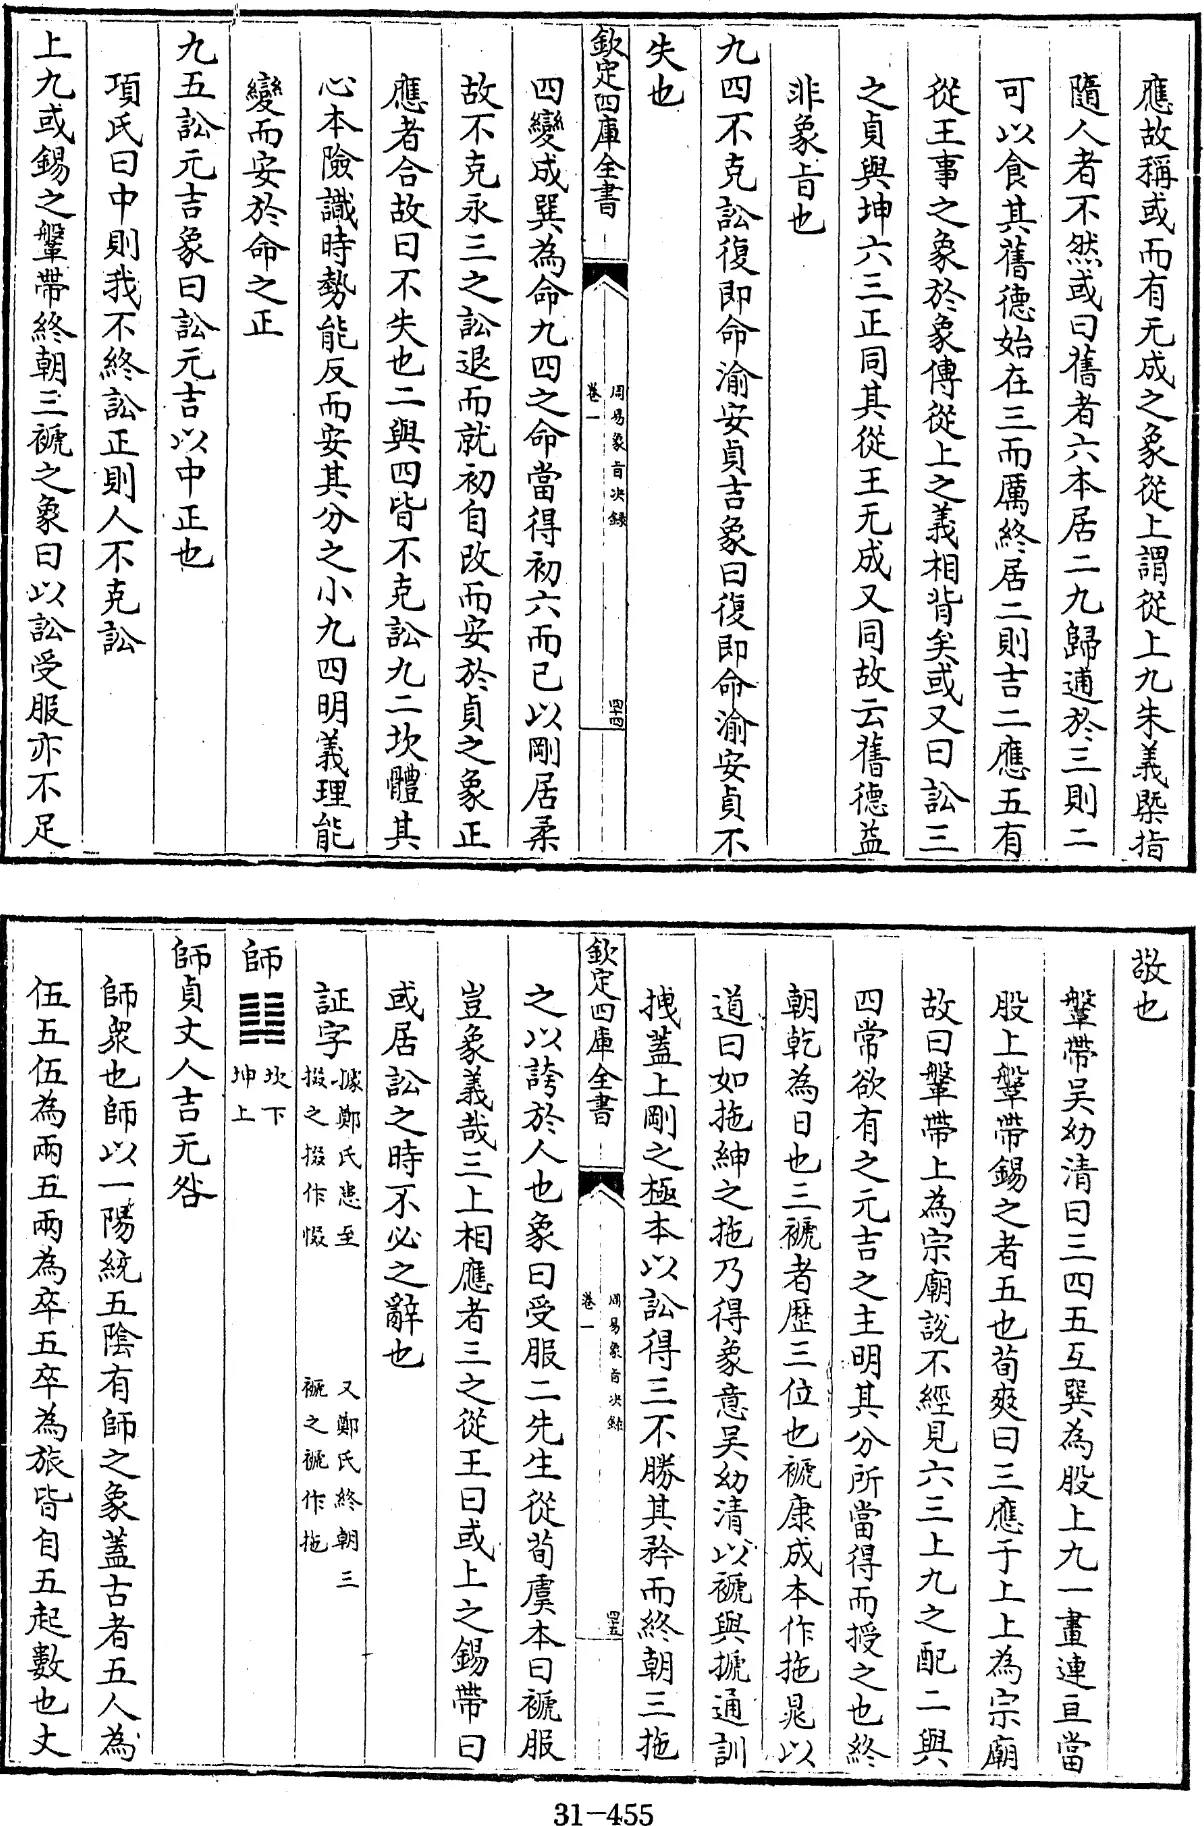 應故稱或而有无成之象從上謂從上九朱義槩指
隨人者不然或曰舊者六本居二九歸逋於三則二
可以食其舊德始在三而厲終居二則吉二應五有
從王事之象於象傳從上之義相背矣或又曰訟三
之貞與坤六三正同其從王无成又同故云舊德益
非象旨也
九四不克訟復即命渝安貞吉象曰復即命渝安貞不
失也
欽定四庫全書
周易象旨決錄
卷一
四十四
四變成巽為命九四之命當得初六而已以剛居柔
故不克永三之訟退而就初自改而安於貞之象正
應者合故曰不失也二與四皆不克訟九二坎體其
心本險識時勢能反而安其分之小九四明義理能
變而安於命之正
九五訟元吉象曰訟元吉以中正也
項氏曰中則我不終訟正則人不克訟
上九或錫之鞶帶終朝三褫之象曰以訟受服亦不足
敬也
鞶帶吴幼清曰三四五互巽為股上九一畫連亘當
股上鞶帶錫之者五也荀爽曰三應于上上為宗廟
故曰鞶帶上為宗廟說不經見六三上九之配二與
四常欲有之元吉之主明其分所當得而授之也終
朝乾為日也三褫者歷三位也褫康成本作拖晁以
道曰如拖紳之拖乃得象意吴幼清以褫與搋通訓
拽蓋上剛之極本以訟得三不勝其矜而終朝三拖
欽定四庫全書
周易象旨決錄
卷一
四十五
之以誇於人也象曰受服二先生從荀虞本曰褫服
豈象義哉三上相應者三之從王曰或上之錫帶曰
或居訟之時不必之辭也
証字 據鄭氏患至掇之掇作惙 又鄭氏終朝三褫之褫作拖
師䷆ 坎下坤上
師貞丈人吉无咎
師衆也師以一陽統五陰有師之象蓋古者五人為
伍五伍為兩五兩為卒五卒為旅皆自五起數也丈
31-455